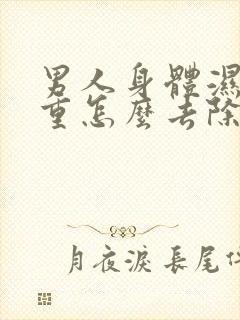 男人身體濕
重怎麼去除
月夜淚 長尾